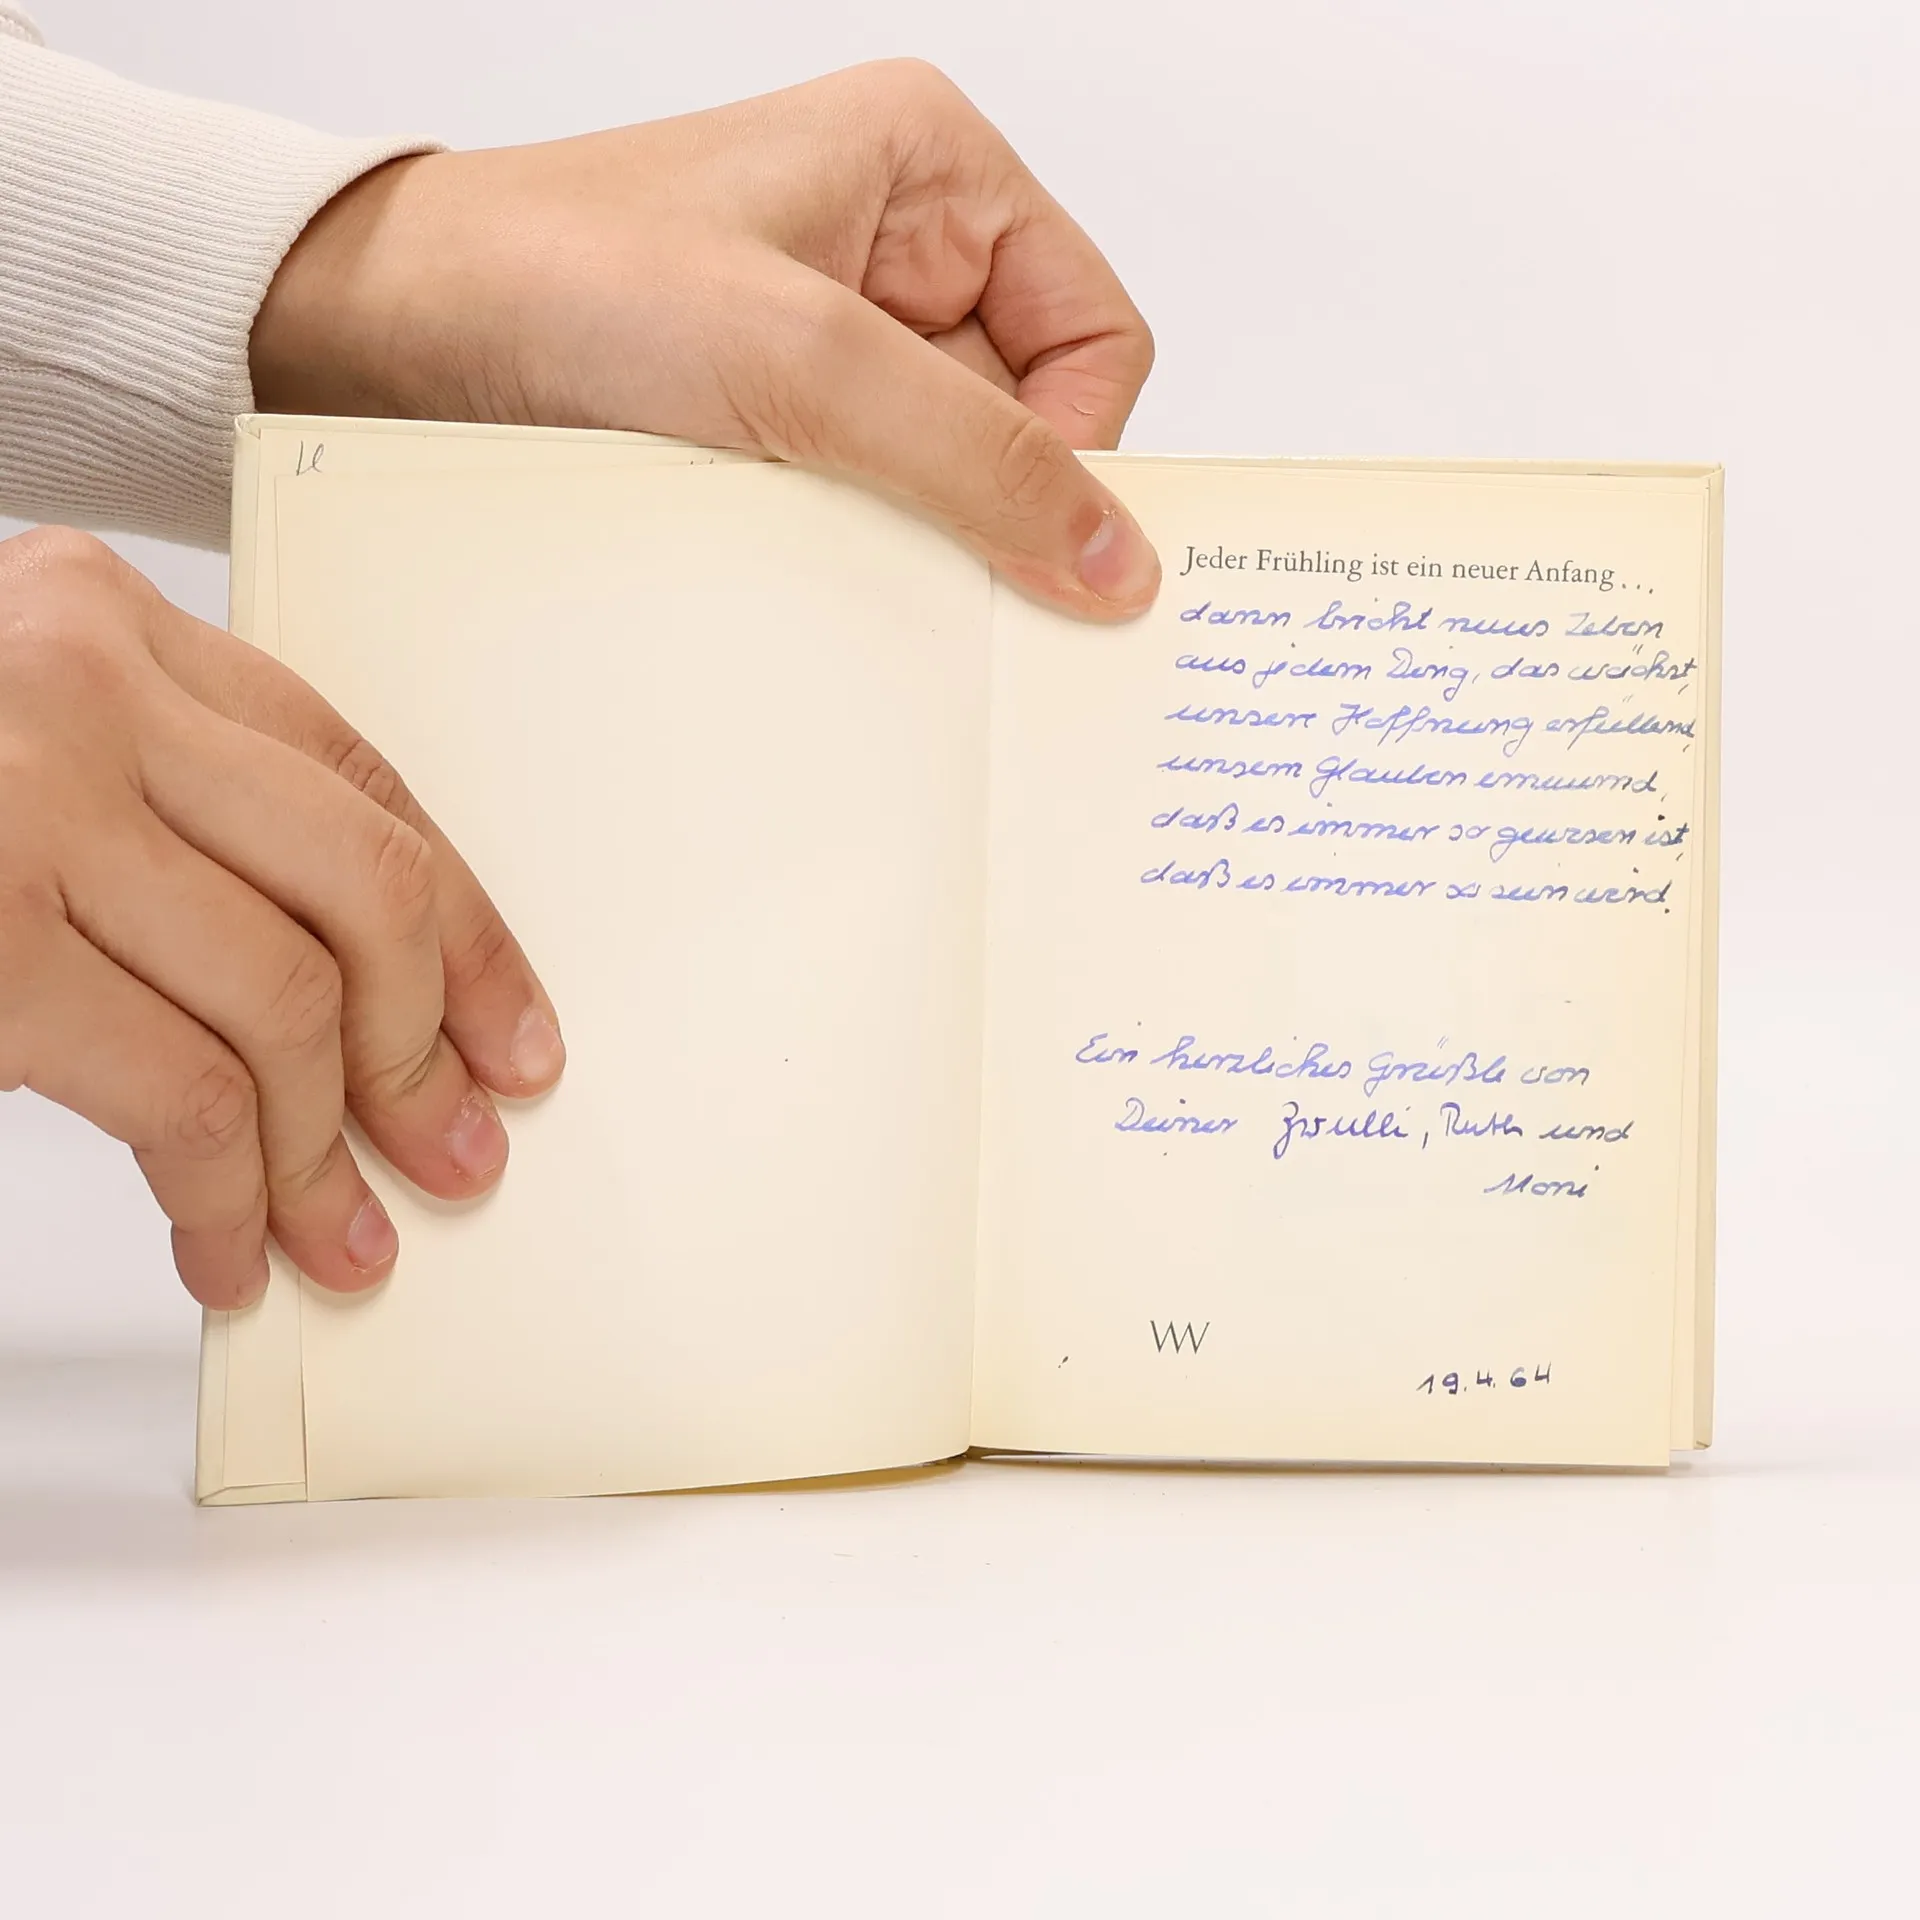 Jeder Frühling ist ein neuer Anfang...
dann bricht neues Leben
aus jedem Ding, das wächst,
unsere Hoffnung erfüllend,
unsern Glauben erneuernd,
daß es immer so gewesen ist,
daß es immer so sein wird.
Ein herzliches Grüßle von
Deiner Zwulli, Ruth und
Moni
VW
19.4.64